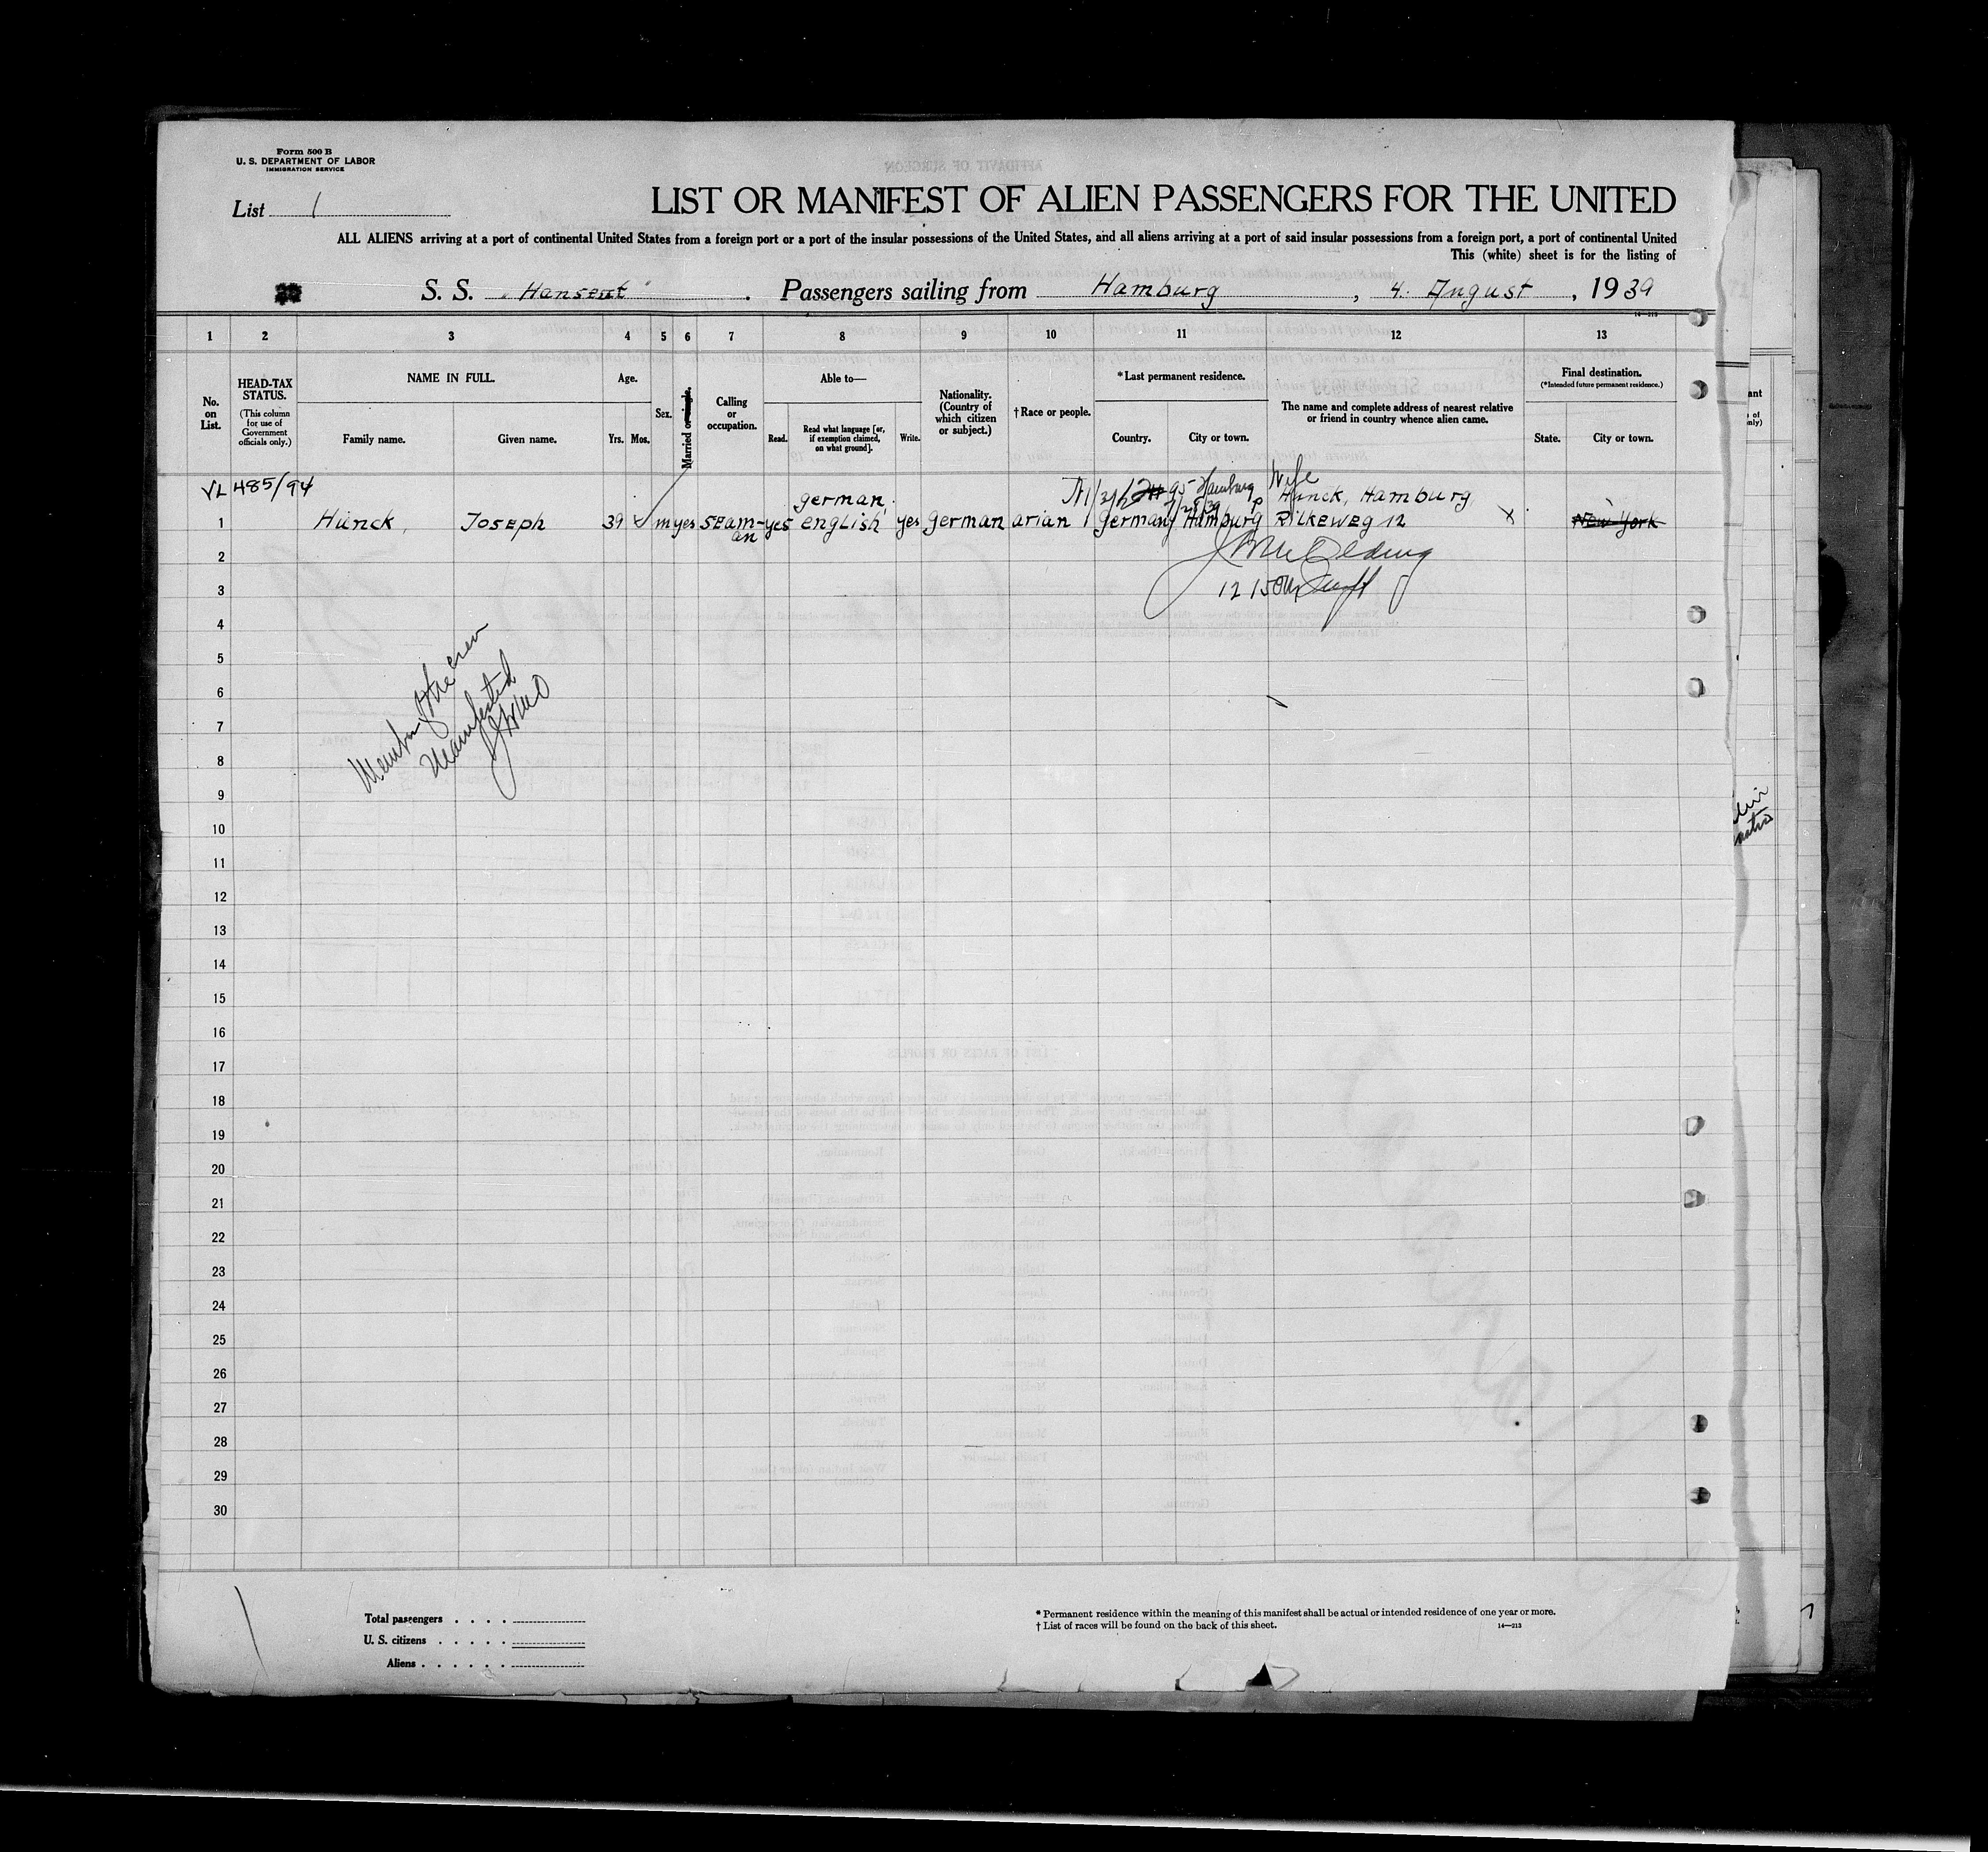 Form 500 B
U. S. DEPARTMENT OF LABOR
IMMIGRATION SERVICE
List 1
LIST OR MANIFEST OF ALIEN PASSENGERS FOR THE UNITED
ALL ALIENS arriving at a port of continental United States from a foreign port or a port of the insular possessions of the United States, and all aliens arriving at a port of said insular possessions from a foreign port, a port of continental United
This (white) sheet is for the listing of
S. S. "Hanseat". Passengers sailing from Hamburg, 4. August, 1939
14—213
1 2 3 4 5 6 7 8 9 10 11 12 13
No. on List.
HEAD-TAX STATUS.
(This column for use of Government officials only.)
NAME IN FULL.
Family name.
Given name.
Age.
Yrs. Mos.
Sex.
Married or single.
Calling or occupation.
Able to—
Read.
Read what language [or, if exemption claimed, on what ground].
Write.
Nationality. (Country of which citizen or subject.)
†Race or people.
*Last permanent residence.
Country.
City or town.
The name and complete address of nearest relative or friend in country whence alien came.
Final destination.
(*Intended future permanent residence.)
State.
City or town.
VL 485/94 german, Hamburg Wife Hünck, Hamburg
1 Hünck, Joseph 39 m yes seam-an yes english yes german arian germany Hamburg Rilkeweg 12 x New York
2
3
4
5
6
7
8
9
10
11
12
13
14
15
16
17
18
19
20
21
22
23
24
25
26
27
28
29
30
Member of the crew
Manifested
Total passengers
U. S. citizens
Aliens
* Permanent residence within the meaning of this manifest shall be actual or intended residence of one year or more.
† List of races will be found on the back of this sheet.
14—213